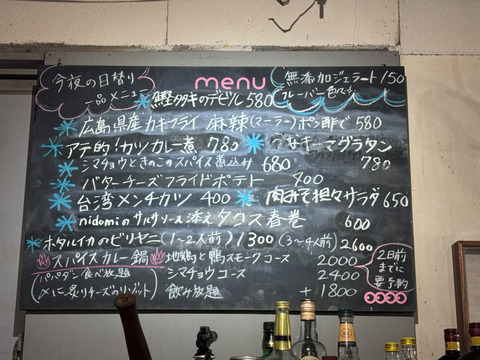 今夜の日替り
一品メニュー
menu
無添加ジェラート150
フレーバー色々
鰹タタキのデビル 580
広島県産カキフライ 麻辣(マーラー)ポン酢で 580
アテ的!カツカレー煮 780
なキーマグラタン 780
シマチョウときのこのスパイス煮込み 680
バターチーズフライドポテト 400
台湾メンチカツ 400
肉みそ担々サラダ 650
nidomiのサルサソース添え タコス春巻 600
ホタルイカのビリヤニ(1~2人前)1300(3~4人前)2600
スパイスカレー鍋
地鶏と鴨スモークコース 2000
(パパダン食べ放題
シマチョウコース 2400
〆に炙りチーズのリゾット)
飲み放題 +1800
2日前
までに
要予約